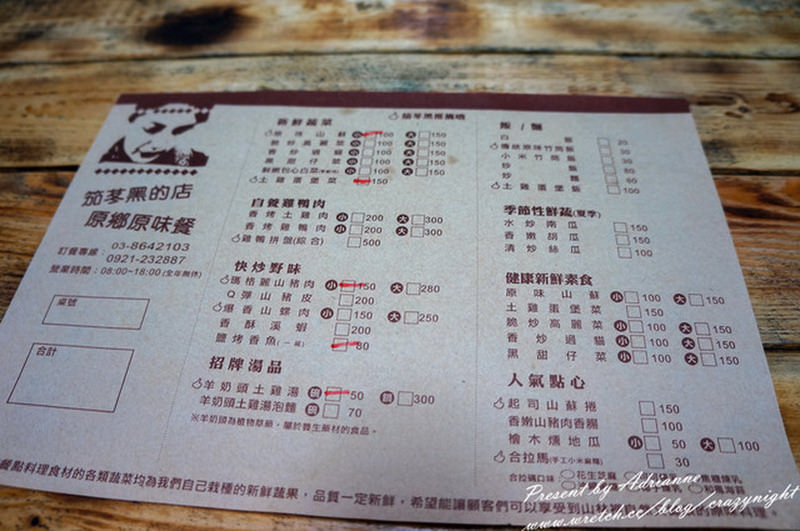 茄苳黑的店
原鄉原味餐
訂餐專線：03-8642103
0921-232887
營業時間：08:00~18:00(全年無休)
桌號
合計
新鮮蔬菜
原味山蘇 小 100 大 150
脆炒高麗菜 小 100 大 150
香炒過貓 小 100 大 150
黑甜仔菜 小 100 大 150
小 100 大 150
土雞蛋堡菜 150
自養雞鴨肉
香烤土雞肉 小 200 大 300
香烤雞鴨肉 小 200 大 300
雞鴨拼盤(綜合) 500
快炒野味
瑪格麗山豬肉 小 150 大 280
Q彈山豬皮 200
爆香山螺肉 小 150 大 250
香酥溪蝦 200
鹽烤香魚 80
招牌湯品
羊奶頭土雞湯 碗 50 鍋 300
羊奶頭土雞湯泡麵 碗 70
※羊奶頭為植物草藥，屬於養生藥材的食品。
飯/麵
白飯 20
傳統原味竹筒飯
小米竹筒飯
炒飯
炒麵 60
土雞蛋堡飯 100
季節性鮮蔬(夏季)
水炒南瓜 150
香嫩胡瓜 150
清炒絲瓜 100
健康新鮮素食
原味山蘇 小 100 大 150
土雞蛋堡菜 150
脆炒高麗菜 小 100 大 150
香炒過貓 小 100 大 150
黑甜仔菜 小 100 大 150
人氣點心
起司山蘇捲 150
香嫩山豬肉香腸 100
檜木燻地瓜 小 50 大 100
合拉馬(手工小米麻糬) 30
合拉碼口味 花生芝麻
餐點料理食材的各類蔬菜均為我們自己栽種的新鮮蔬果，品質一定新鮮，希望能讓顧客們可以享受到山林
Present by Adrianne
www.wretch.cc/blog/crazynight